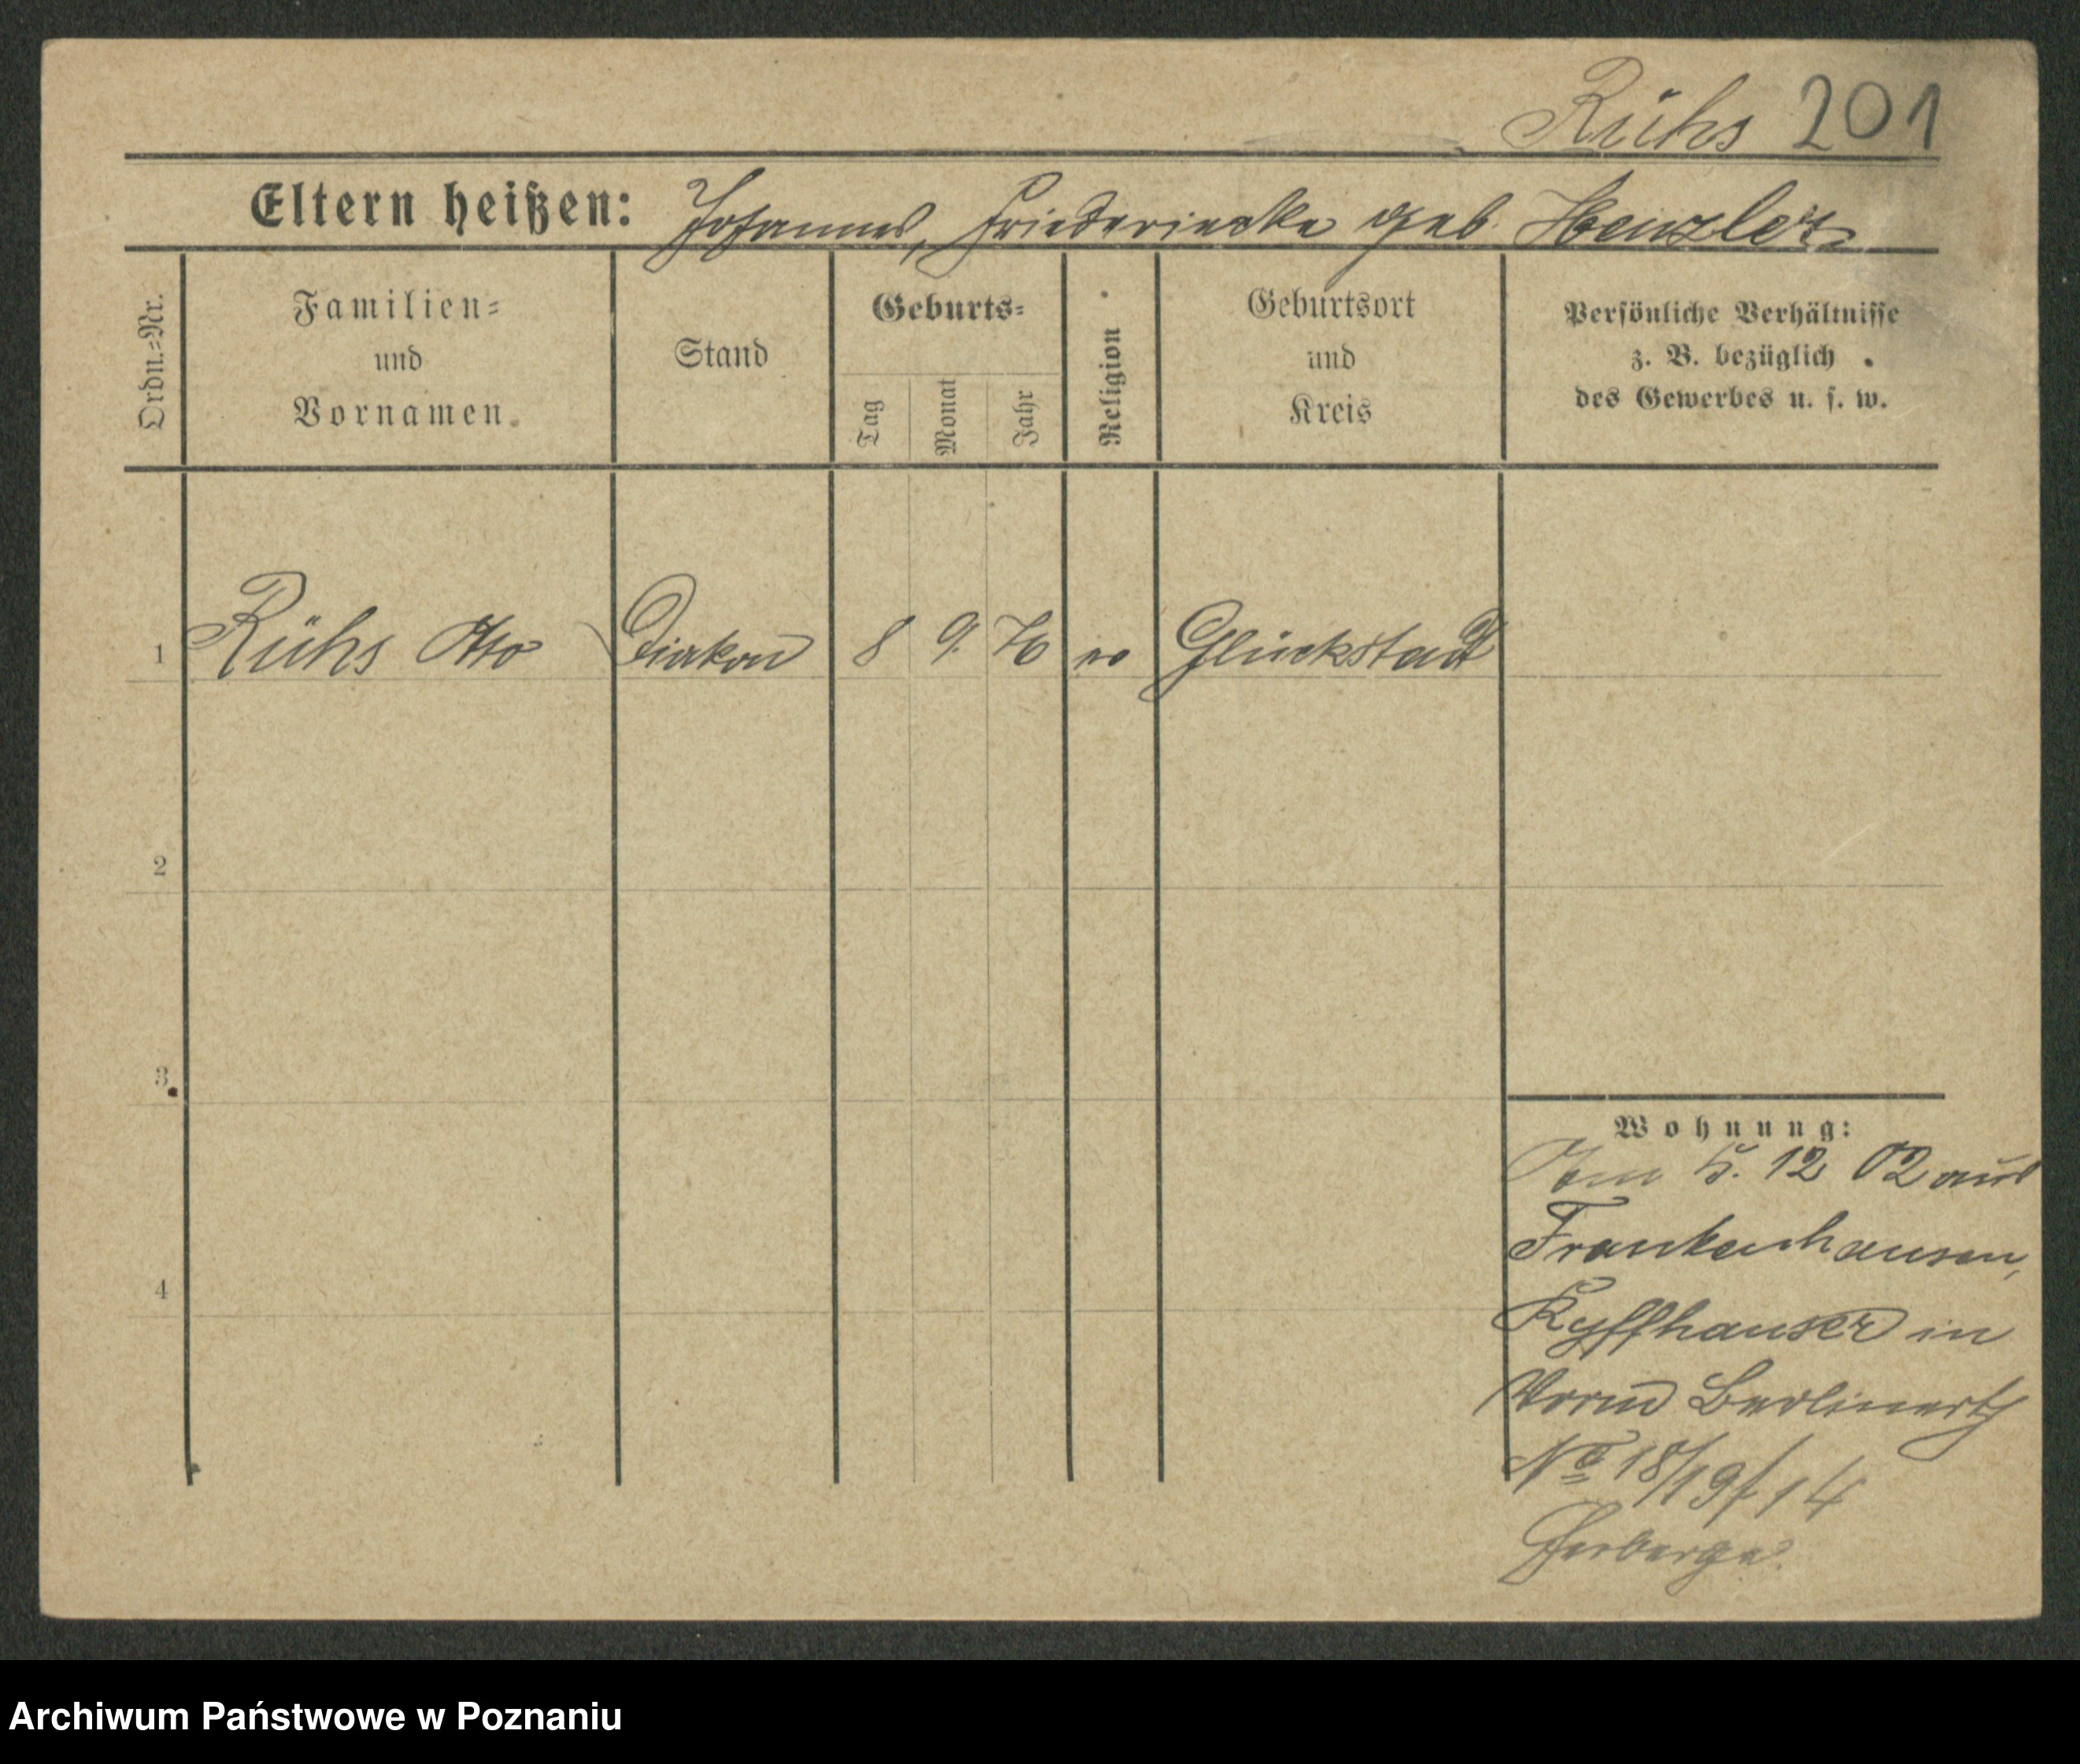 Rühs 201
Eltern heißen: Johannes, Friederiecke geb. Henzler
Ordn.=Nr.
Familien=
und
Vornamen.
Stand
Geburts=
Tag
Monat
Jahr
Religion
Geburtsort
und
Kreis
Persönliche Verhältnisse
z. B. bezüglich
des Gewerbes u. s. w.
1 Rühs Otto Diakon 8 9. 76 ev Glückstadt
2
3
4
Wohnung:
5. 12 02 aus
Frankenhausen,
Kyffhauser in
Berlinerstr
No 18/19/14
Herberge.
Archiwum Państwowe w Poznaniu